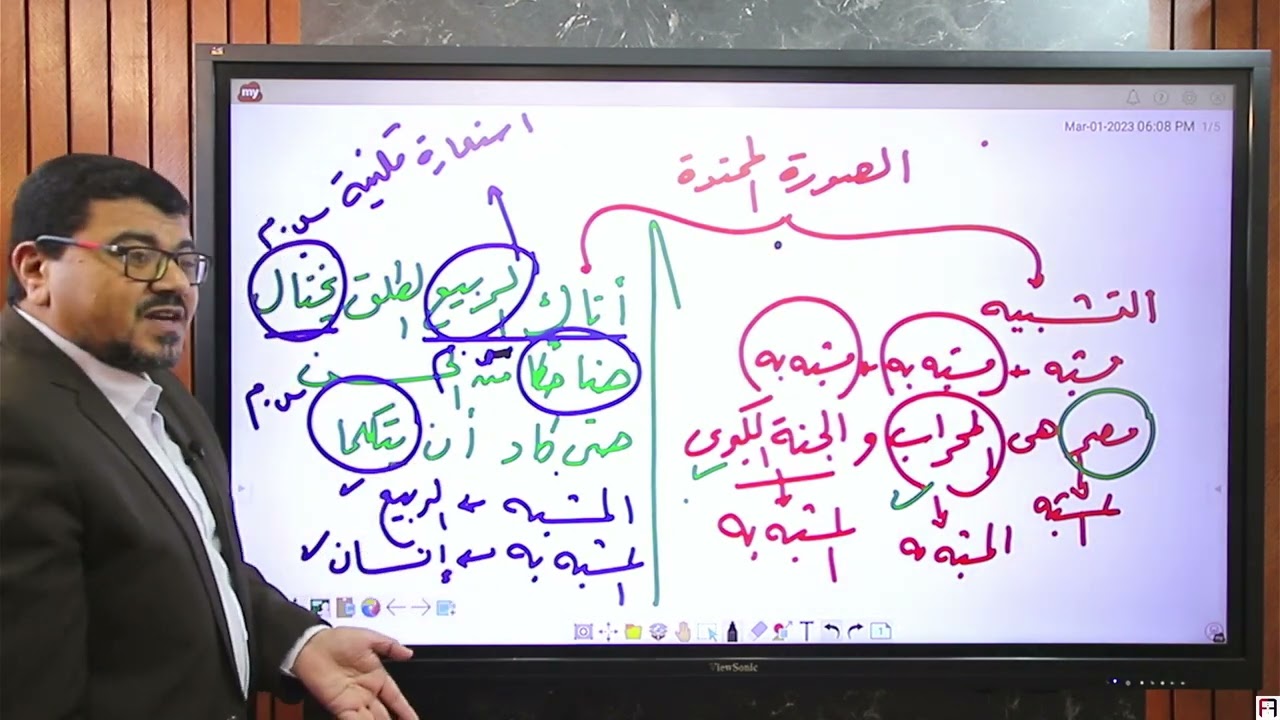 my
Mar-01-2023 06:08 PM 1/5
الصورة الممتدة
التشبيه
مشبه + مشبه به + مشبه به
مصر هى المحراب و الجنة الكبرى
المشبه
المشبه به
المشبه به
استعارة مكنية
س.م
أتاك الربيع الطلق يختال
ضاحكا من الحسن
س.م
س.م
حتى كاد أن يتكلما
المشبه ← الربيع
المشبه به ← إنسان
ViewSonic